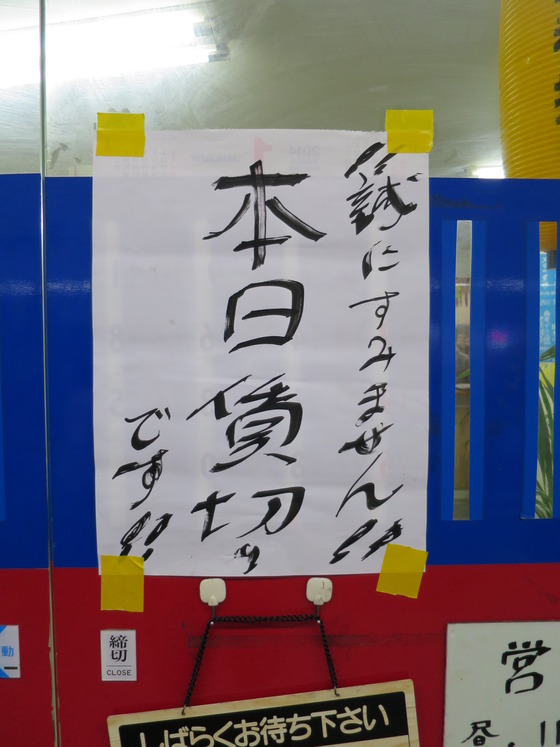 誠にすみません!!
本日貸切り
です!!
締切
CLOSE
しばらくお待ち下さい
動
営
昼